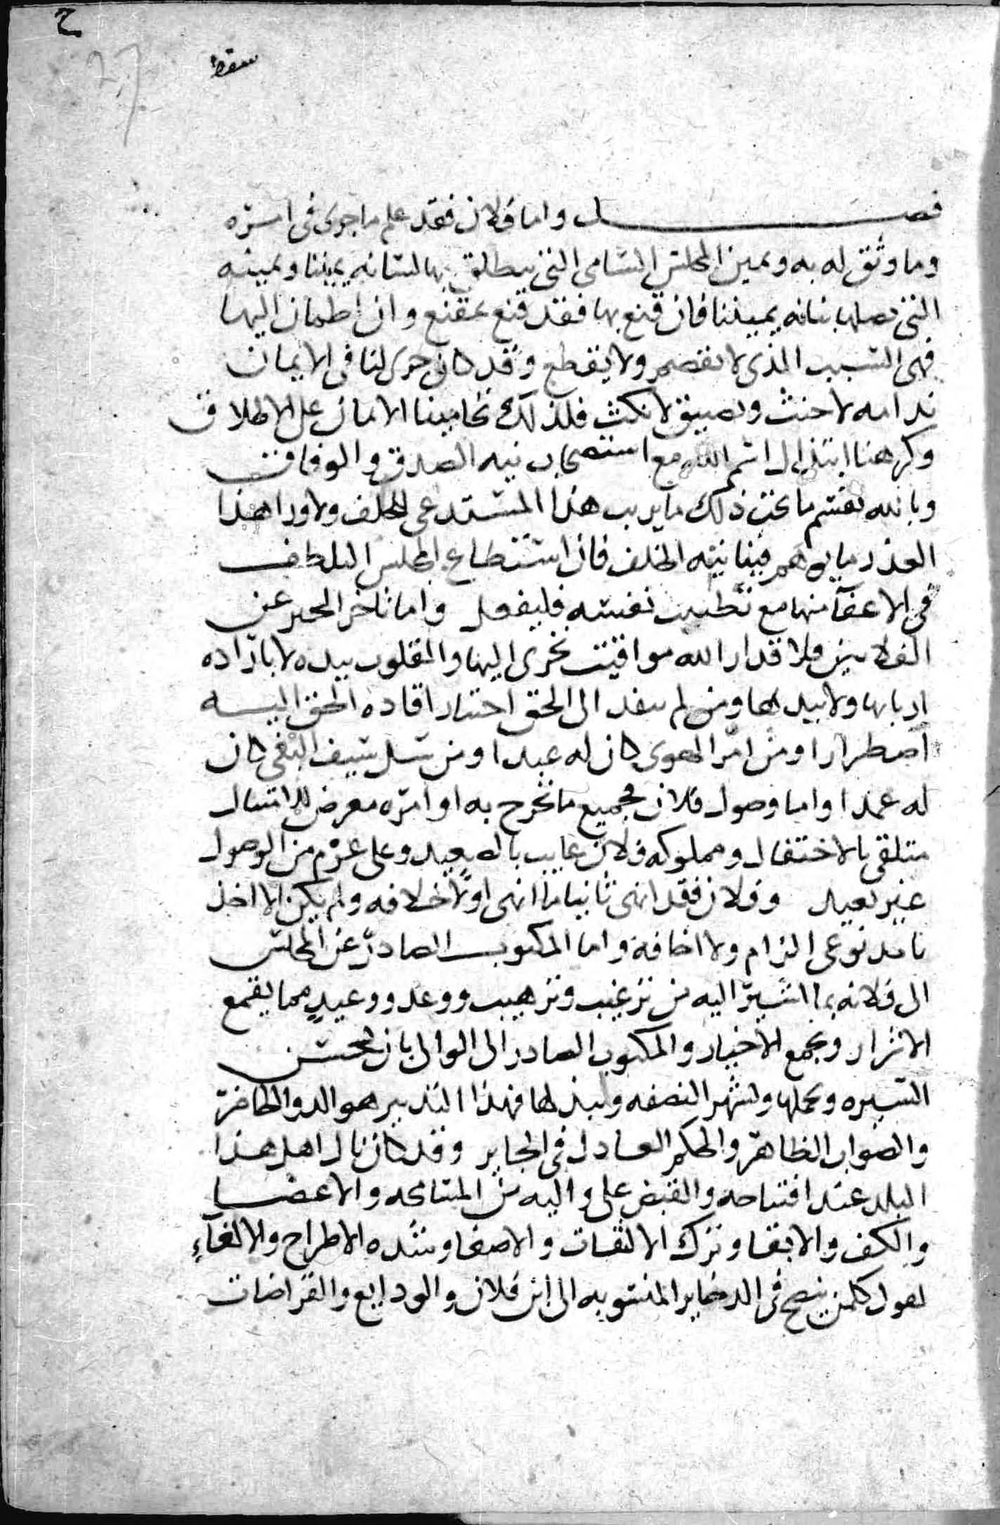 ح
سقط
27
فصل واما فلان فقد علم ما جرى فى امره
وما وثق له به ويمين المجلس السامى التى ينطلق بها لسانه يميننا ويمينه
التى تصلها بنانه يميننا فان قنع بها فقد قنع بمقنع وان اطمان اليها
فهى السبب الذى لا ينفصم ولا ينقطع وقد كان جرى لنا فى الايمان
ندامه لا حنث وتضييق لا نكث فلذلك تحامينا الايمان على الاطلاق
وكرهنا ابتذال اسم الله مع استصحاب نيه الصدق والوفاق
وبالله نقسم ما تحت ذلك ما يريب هذا المستدعى للحلف ولا ورا هذا
العذر ما يوهم فينا نيه الخلف فان استطاع المجلس التلطف
فى الاعفآ منها مع تطييب نفسه فليفعل واما تاخر الخبر عن
الفلانيين فلاقدار الله مواقيت تجرى اليها والقلوب بيده لا باراده
اربابها ولا بيدها ومن لم ينقد الى الحق اختيارا قاده الحق اليه
اضطرارا ومن امر الهوى كان له عبدا ومن سل سيف البغى كان
له غمدا واما وصول فلان فجميع ما تخرج به اوامره معرض للامتثال
متلقى بالاحتفال ومملوكه فلان غايب باله بعيد وعلى عزم من الوصول
غير بعيد وفلان فقد انهى ثانيا ما انهى اولا خلافه ولم يكن الا اخذ
باحد نوعى الزام ولا اخافة واما المكتوب الصادر عن المجلس
الى فلانه بما اشير اليه من ترغيب وترهيب ووعد ووعيد مما يقمع
الاشرار ويجمع الاخيار والمكتوب الصادر الى الوالى بان يحسن
السيره ويجملها ويشهر النصفه ويبذلها فهذا التدبير هو الدوا الحاضر
والصواب الظاهر والحكم العادل فى الجاير وقد كان نال اهل هذا
البلد عند افتتاحه والقبض على واليه من المسامحه والاغضا
والكف والابقا وترك الالتفات والاصغا وشده الاطراح والالغاء
لقول كل من ينصح فى الذخاير المنسوبه الى ابن فلان والودايع والقراضات